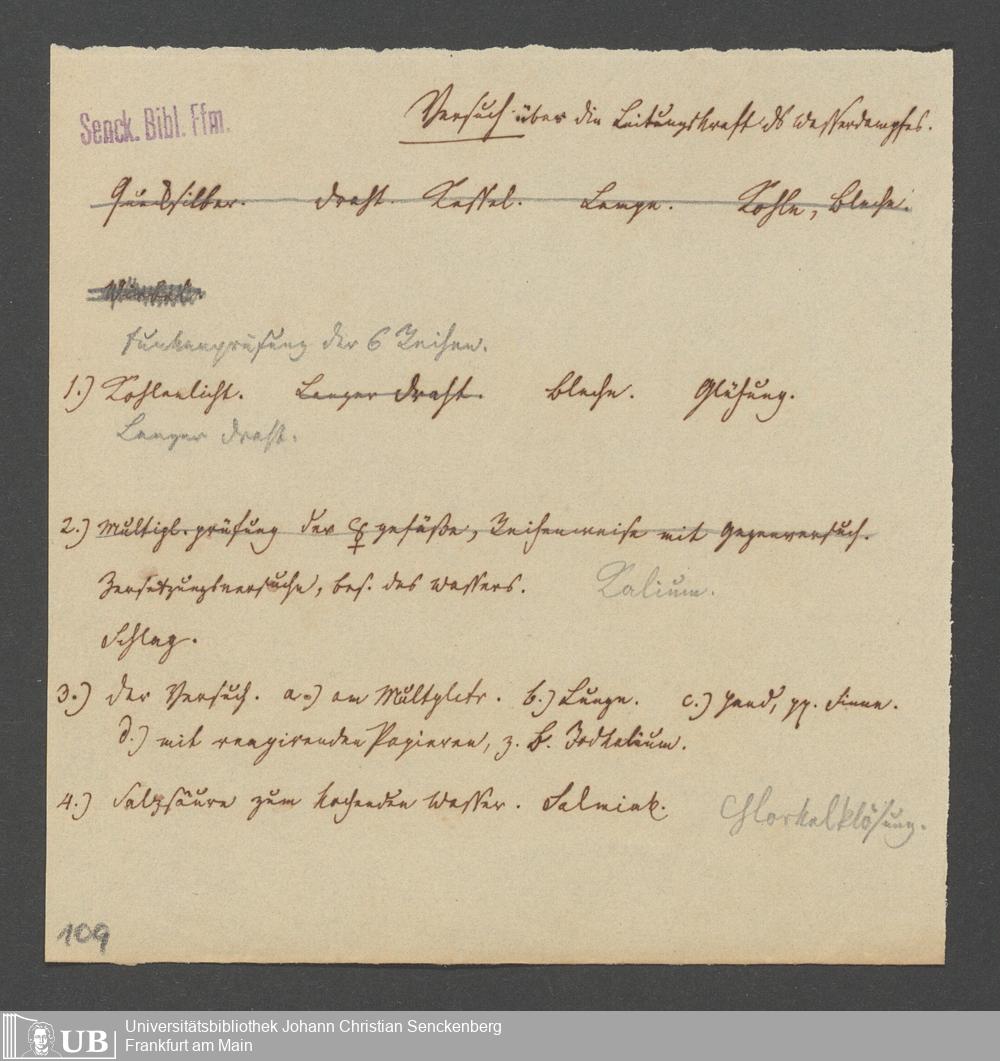 Senck. Bibl. Ffm.
Versuch über die Leitungskraft ds Wasserdampfes.
Quecksilber. Draht. Kessel. Lampe. Kohle, Bleche.
Funkenprüfung der 6 Reihen.
1.) Kohlenlicht. Langer Draht. Bleche. Glühung.
Langer Draht.
2.) Multipl. prüfung der gefäße, Reihenweise mit Gegenversuch.
Zersetzungsversuche, bes. des Wassers. Kalium.
Schlag.
3.) der Versuch. a.) am Multplctr. b.) Zunge. c.) Hand, pp. Sinne.
d.) mit reagirenden Papieren, z. B. Jodkalium.
4.) Salzsäure zum kochenden Wasser. Salmiak. Chlorkalklösung.
109
UB Universitätsbibliothek Johann Christian Senckenberg
Frankfurt am Main